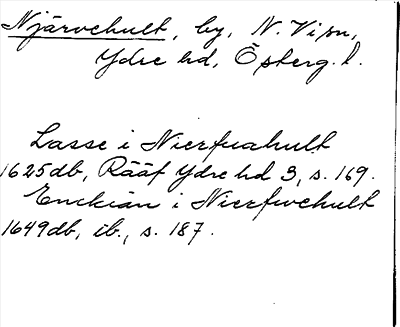 Njärvehult, by, N. Vi sn,
Ydre hd, Östergl.
Lasse i Nierfuahult
1625 db, Rääf Ydre hd 3, s. 169.
Enckian i Nierfwehult
1649 db, ib., s. 187.